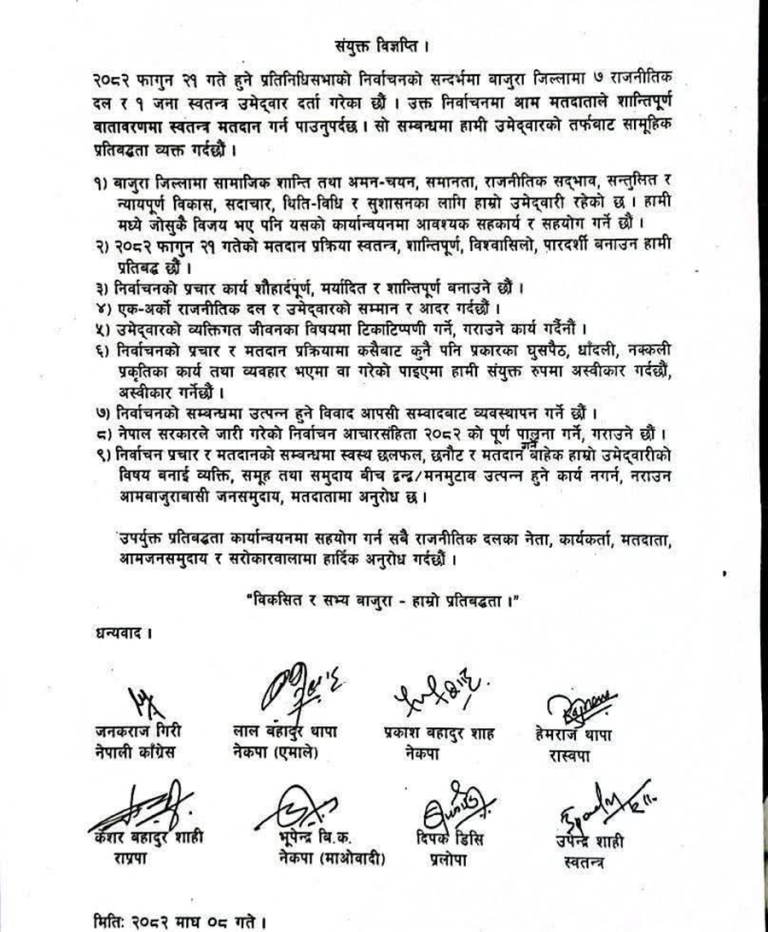 संयुक्त विज्ञप्ति ।
२०८२ फागुन २१ गते हुने प्रतिनिधिसभाको निर्वाचनको सन्दर्भमा बाजुरा जिल्लामा ७ राजनीतिक
दल र १ जना स्वतन्त्र उमेद्वार दर्ता गरेका छौं । उक्त निर्वाचनमा आम मतदाताले शान्तिपूर्ण
वातावरणमा स्वतन्त्र मतदान गर्न पाउनुपर्दछ । सो सम्बन्धमा हामी उमेद्वारको तर्फबाट सामूहिक
प्रतिबद्धता व्यक्त गर्दछौं ।
१) बाजुरा जिल्लामा सामाजिक शान्ति तथा अमन-चयन, समानता, राजनीतिक सद्भाव, सन्तुलित र
न्यायपूर्ण विकास, सदाचार, थिति-विधि र सुशासनका लागि हाम्रो उमेद्वारी रहेको छ । हामी
मध्ये जोसुकै विजय भए पनि यसको कार्यान्वयनमा आवश्यक सहकार्य र सहयोग गर्ने छौं ।
२) २०८२ फागुन २१ गतेको मतदान प्रक्रिया स्वतन्त्र, शान्तिपूर्ण, विश्वासिलो, पारदर्शी बनाउन हामी
प्रतिबद्ध छौं ।
३) निर्वाचनको प्रचार कार्य शौहार्दपूर्ण, मर्यादित र शान्तिपूर्ण बनाउने छौं ।
४) एक-अर्को राजनीतिक दल र उमेद्वारको सम्मान र आदर गर्दछौं ।
५) उमेद्वारको व्यक्तिगत जीवनका विषयमा टिकाटिप्पणी गर्ने, गराउने कार्य गर्दैनौं ।
६) निर्वाचनको प्रचार र मतदान प्रक्रियामा कसैबाट कुनै पनि प्रकारका घुसपैठ, धाँदली, नक्कली
प्रकृतिका कार्य तथा व्यवहार भएमा वा गरेको पाइएमा हामी संयुक्त रुपमा अस्वीकार गर्दछौं,
अस्वीकार गर्नेछौं ।
७) निर्वाचनको सम्बन्धमा उत्पन्न हुने विवाद आपसी सम्वादबाट व्यवस्थापन गर्ने छौं ।
८) नेपाल सरकारले जारी गरेको निर्वाचन आचारसंहिता २०८२ को पूर्ण पालना गर्ने, गराउने छौं ।
९) निर्वाचन प्रचार र मतदानको सम्बन्धमा स्वस्थ छलफल, छनौट र मतदान गर्ने बाहेक हाम्रो उमेद्वारीको
विषय बनाई व्यक्ति, समूह तथा समुदाय बीच द्वन्द्व/मनमुटाव उत्पन्न हुने कार्य नगर्न, नराउन
आमबाजुराबासी जनसमुदाय, मतदातामा अनुरोध छ ।
उपर्युक्त प्रतिबद्धता कार्यान्वयनमा सहयोग गर्न सबै राजनीतिक दलका नेता, कार्यकर्ता, मतदाता,
आमजनसमुदाय र सरोकारवालामा हार्दिक अनुरोध गर्दछौं ।
"विकसित र सभ्य बाजुरा - हाम्रो प्रतिबद्धता ।"
धन्यवाद ।
जनकराज गिरी लाल बहादुर थापा प्रकाश बहादुर शाह हेमराज थापा
नेपाली काँग्रेस नेकपा (एमाले) नेकपा रास्वपा
केशर बहादुर शाही भूपेन्द्र बि.क. दिपक डिसि उपेन्द्र शाही
राप्रपा नेकपा (माओवादी) प्रलोपा स्वतन्त्र
मितिः २०८२ माघ ०८ गते ।